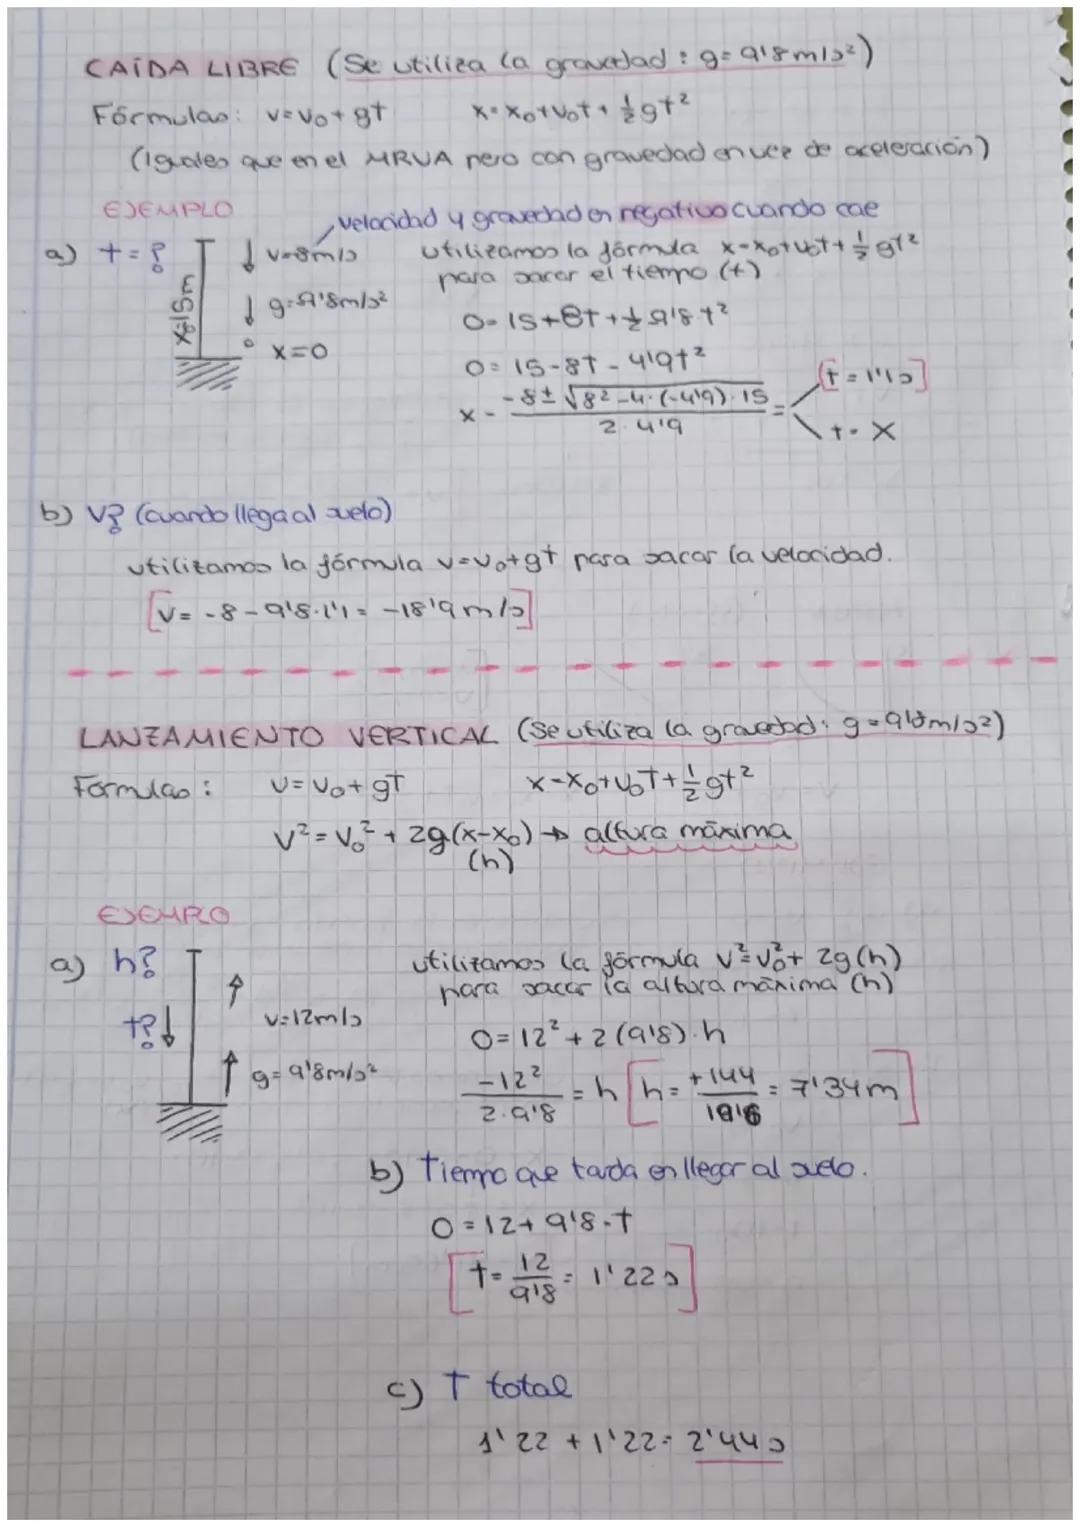 CAÍDA LIBRE (Se utiliza la gravedad: g=9'8m/s²)
Fórmulas: v=v₀+gt    x=x₀+v₀t+½gt²
(Iguales que en el MRUA pero con gravedad en vez de aceleración)
EJEMPLO
velocidad y gravedad en negativo cuando cae
a) t=?  x₀=15m  ↓ v=8m/s
↓ g=9'8m/s²
x=0
utilizamos la fórmula x=x₀+v₀t+½gt²
para sacar el tiempo (t)
0=15+8t+½9'8·t²
0=15-8t-4'9t²
x= (-8±√8²-4·(-4'9)·15)/(2·4'9) = [t=1'1s]
t=X
b) V? (cuando llega al suelo)
utilizamos la fórmula v=v₀+gt para sacar la velocidad.
[v=-8-9'8·1'1=-18'9m/s]
LANZAMIENTO VERTICAL (Se utiliza la gravedad: g=9'8m/s²)
Fórmulas: v=v₀+gt    x=x₀+v₀t+½gt²
v²=v₀²+2g(x-x₀)→altura máxima
(h)
EJEMPLO
a) h?
t?↓
↑ v=12m/s
↑ g=9'8m/s²
utilizamos la fórmula v²=v₀²+2g(h)
para sacar la altura máxima (h)
0=12²+2(9'8)·h
-12²/2·9'8 = h [h= +144/19'6 = 7'34m]
b) Tiempo que tarda en llegar al suelo.
0=12+9'8·t
[t= 12/9'8 = 1'22s]
c) T total
1'22+1'22=2'44s